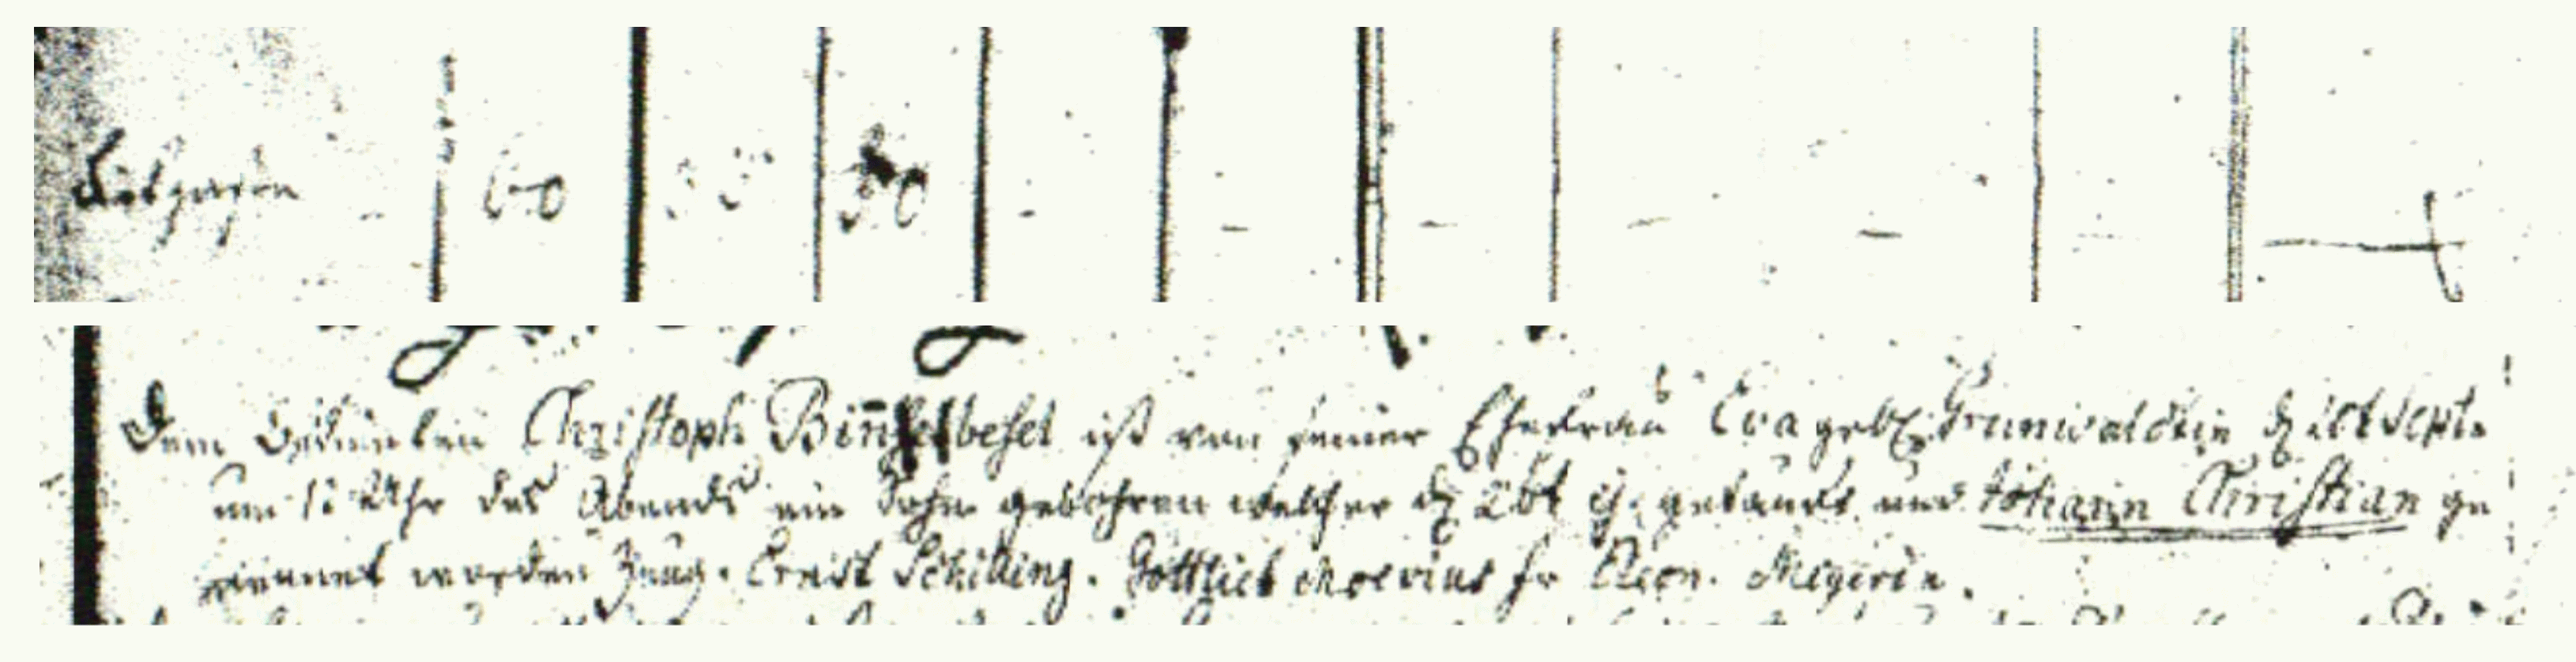 60 30 - - - - - -
Dem Christoph Binkelbesel ist von seiner Ehefrau Eva geb. Grunwaldtin d 21t Sept.
um Uhr des Abends ein Sohn gebohren welcher d 26t ej. getauft und Johann Christian ge
nennet worden Zeug. Ernst Schilling. Gottlieb Moevius fr Meyerin.